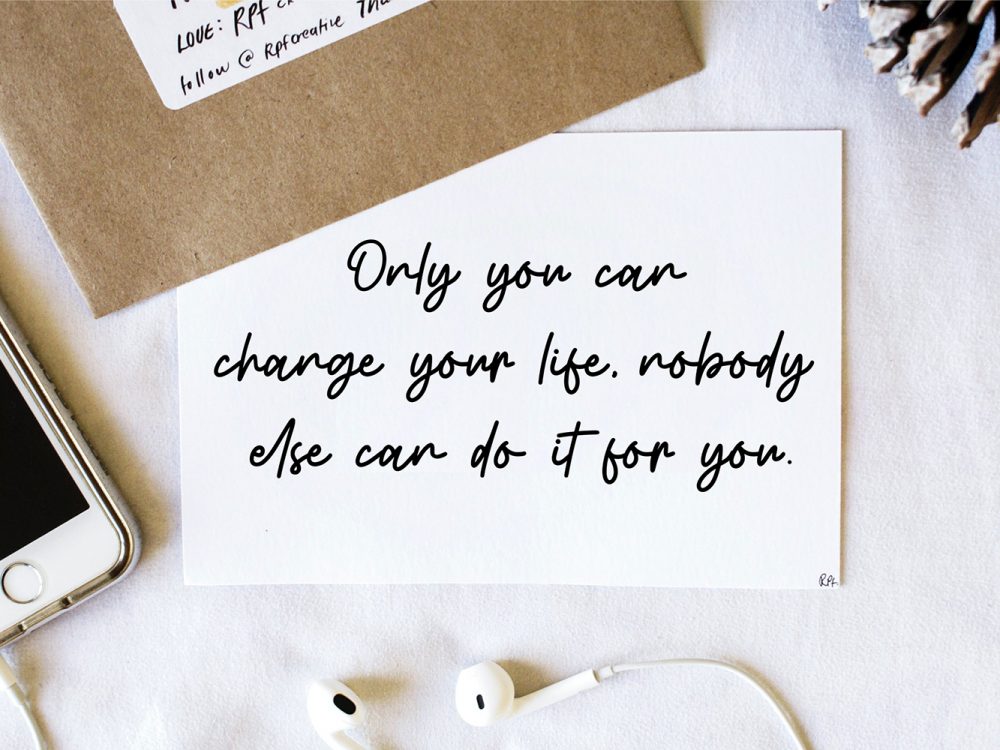 LOVE: RPf
follow @ Rpfcreative
Only you can
change your life. nobody
else can do it for you.
RPf